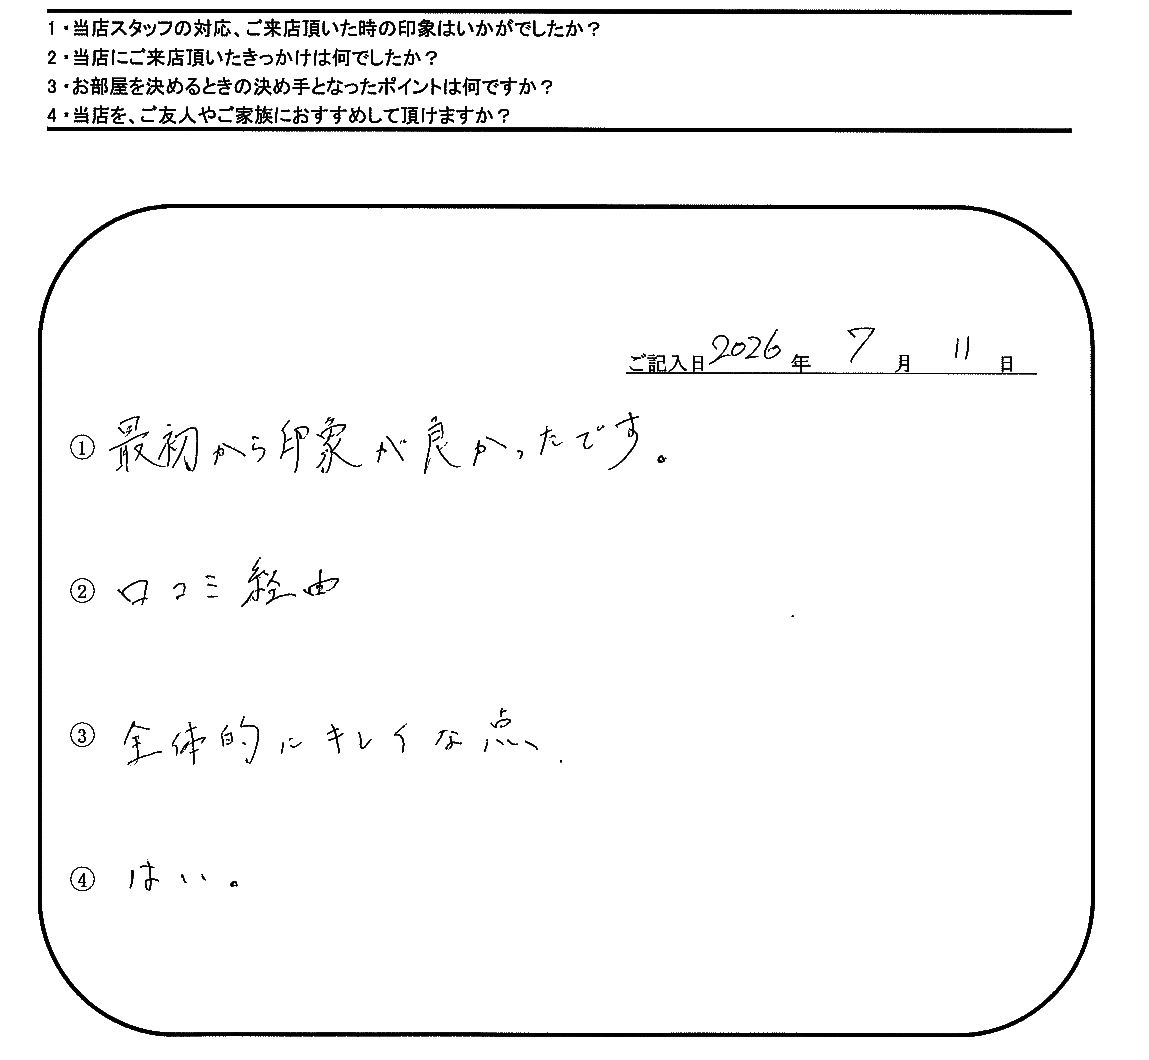 1・当店スタッフの対応、ご来店頂いた時の印象はいかがでしたか？
2・当店にご来店頂いたきっかけは何でしたか？
3・お部屋を決めるときの決め手となったポイントは何ですか？
4・当店を、ご友人やご家族におすすめして頂けますか？
ご記入日2026年 7月 11日
① 最初から印象が良かったです。
② 口コミ経由
③ 全体的にキレイな点、
④ はい。